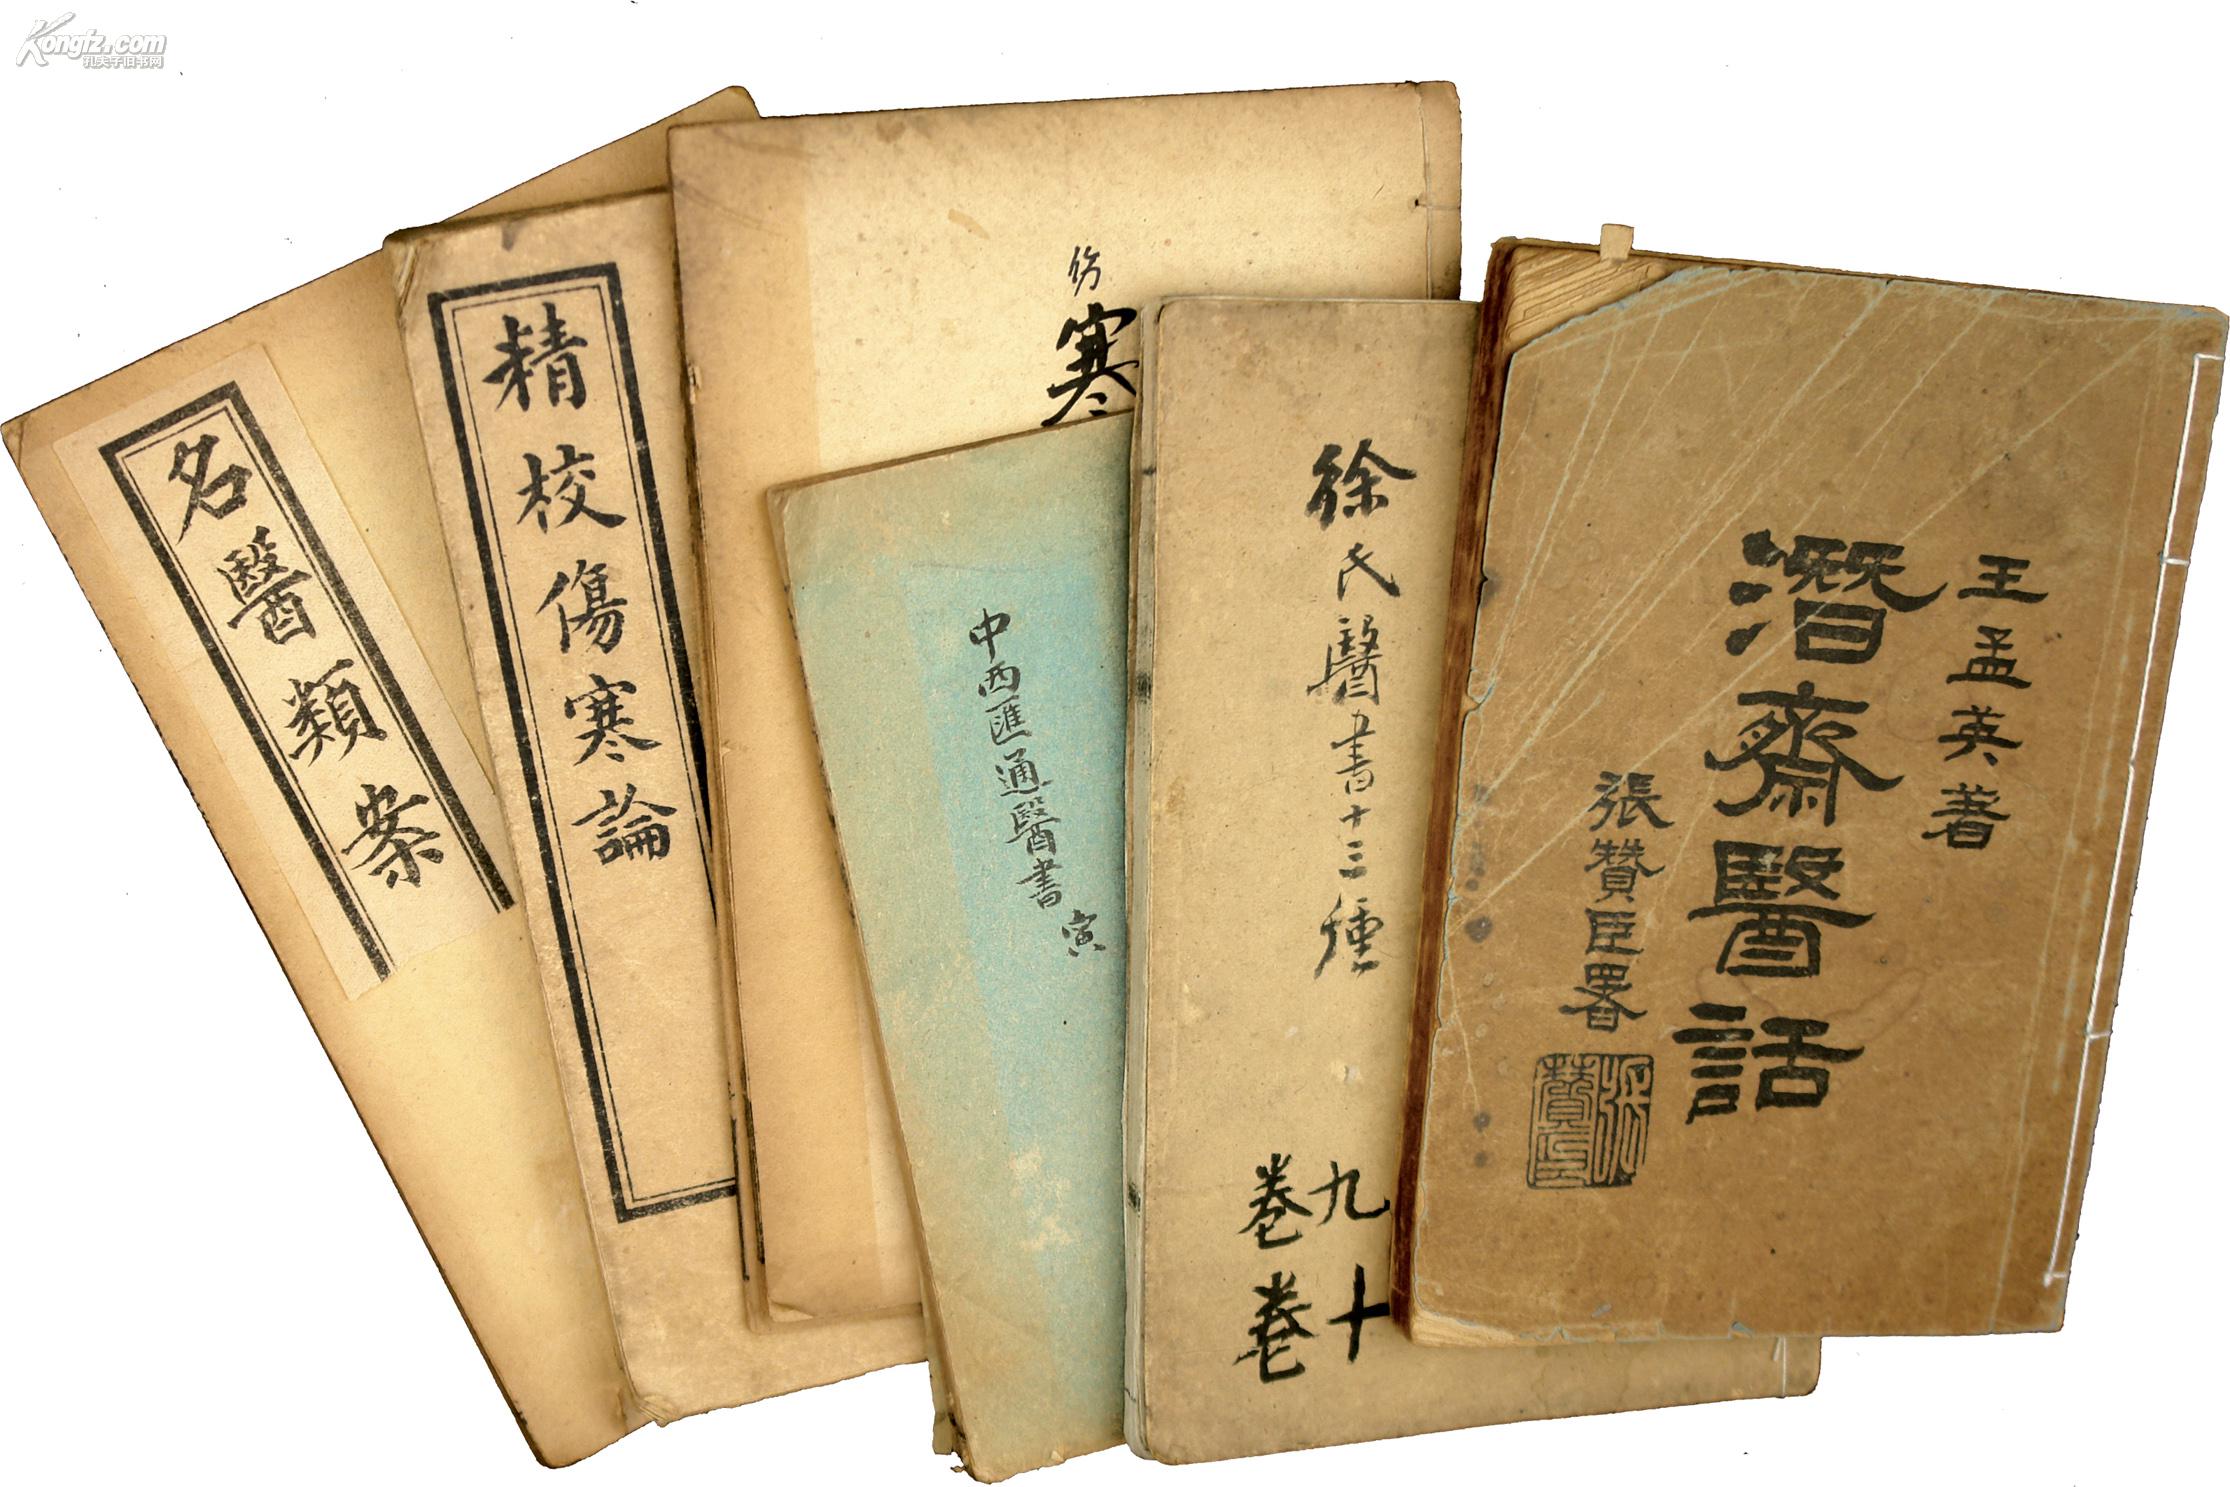 Kongfz.com
孔夫子旧书网
名醫類案
精校傷寒論
伤寒
中西匯通醫書
寅
徐氏醫書十三種
卷九
卷十
王孟英著
潛齋醫話
張贊臣署
張贊臣